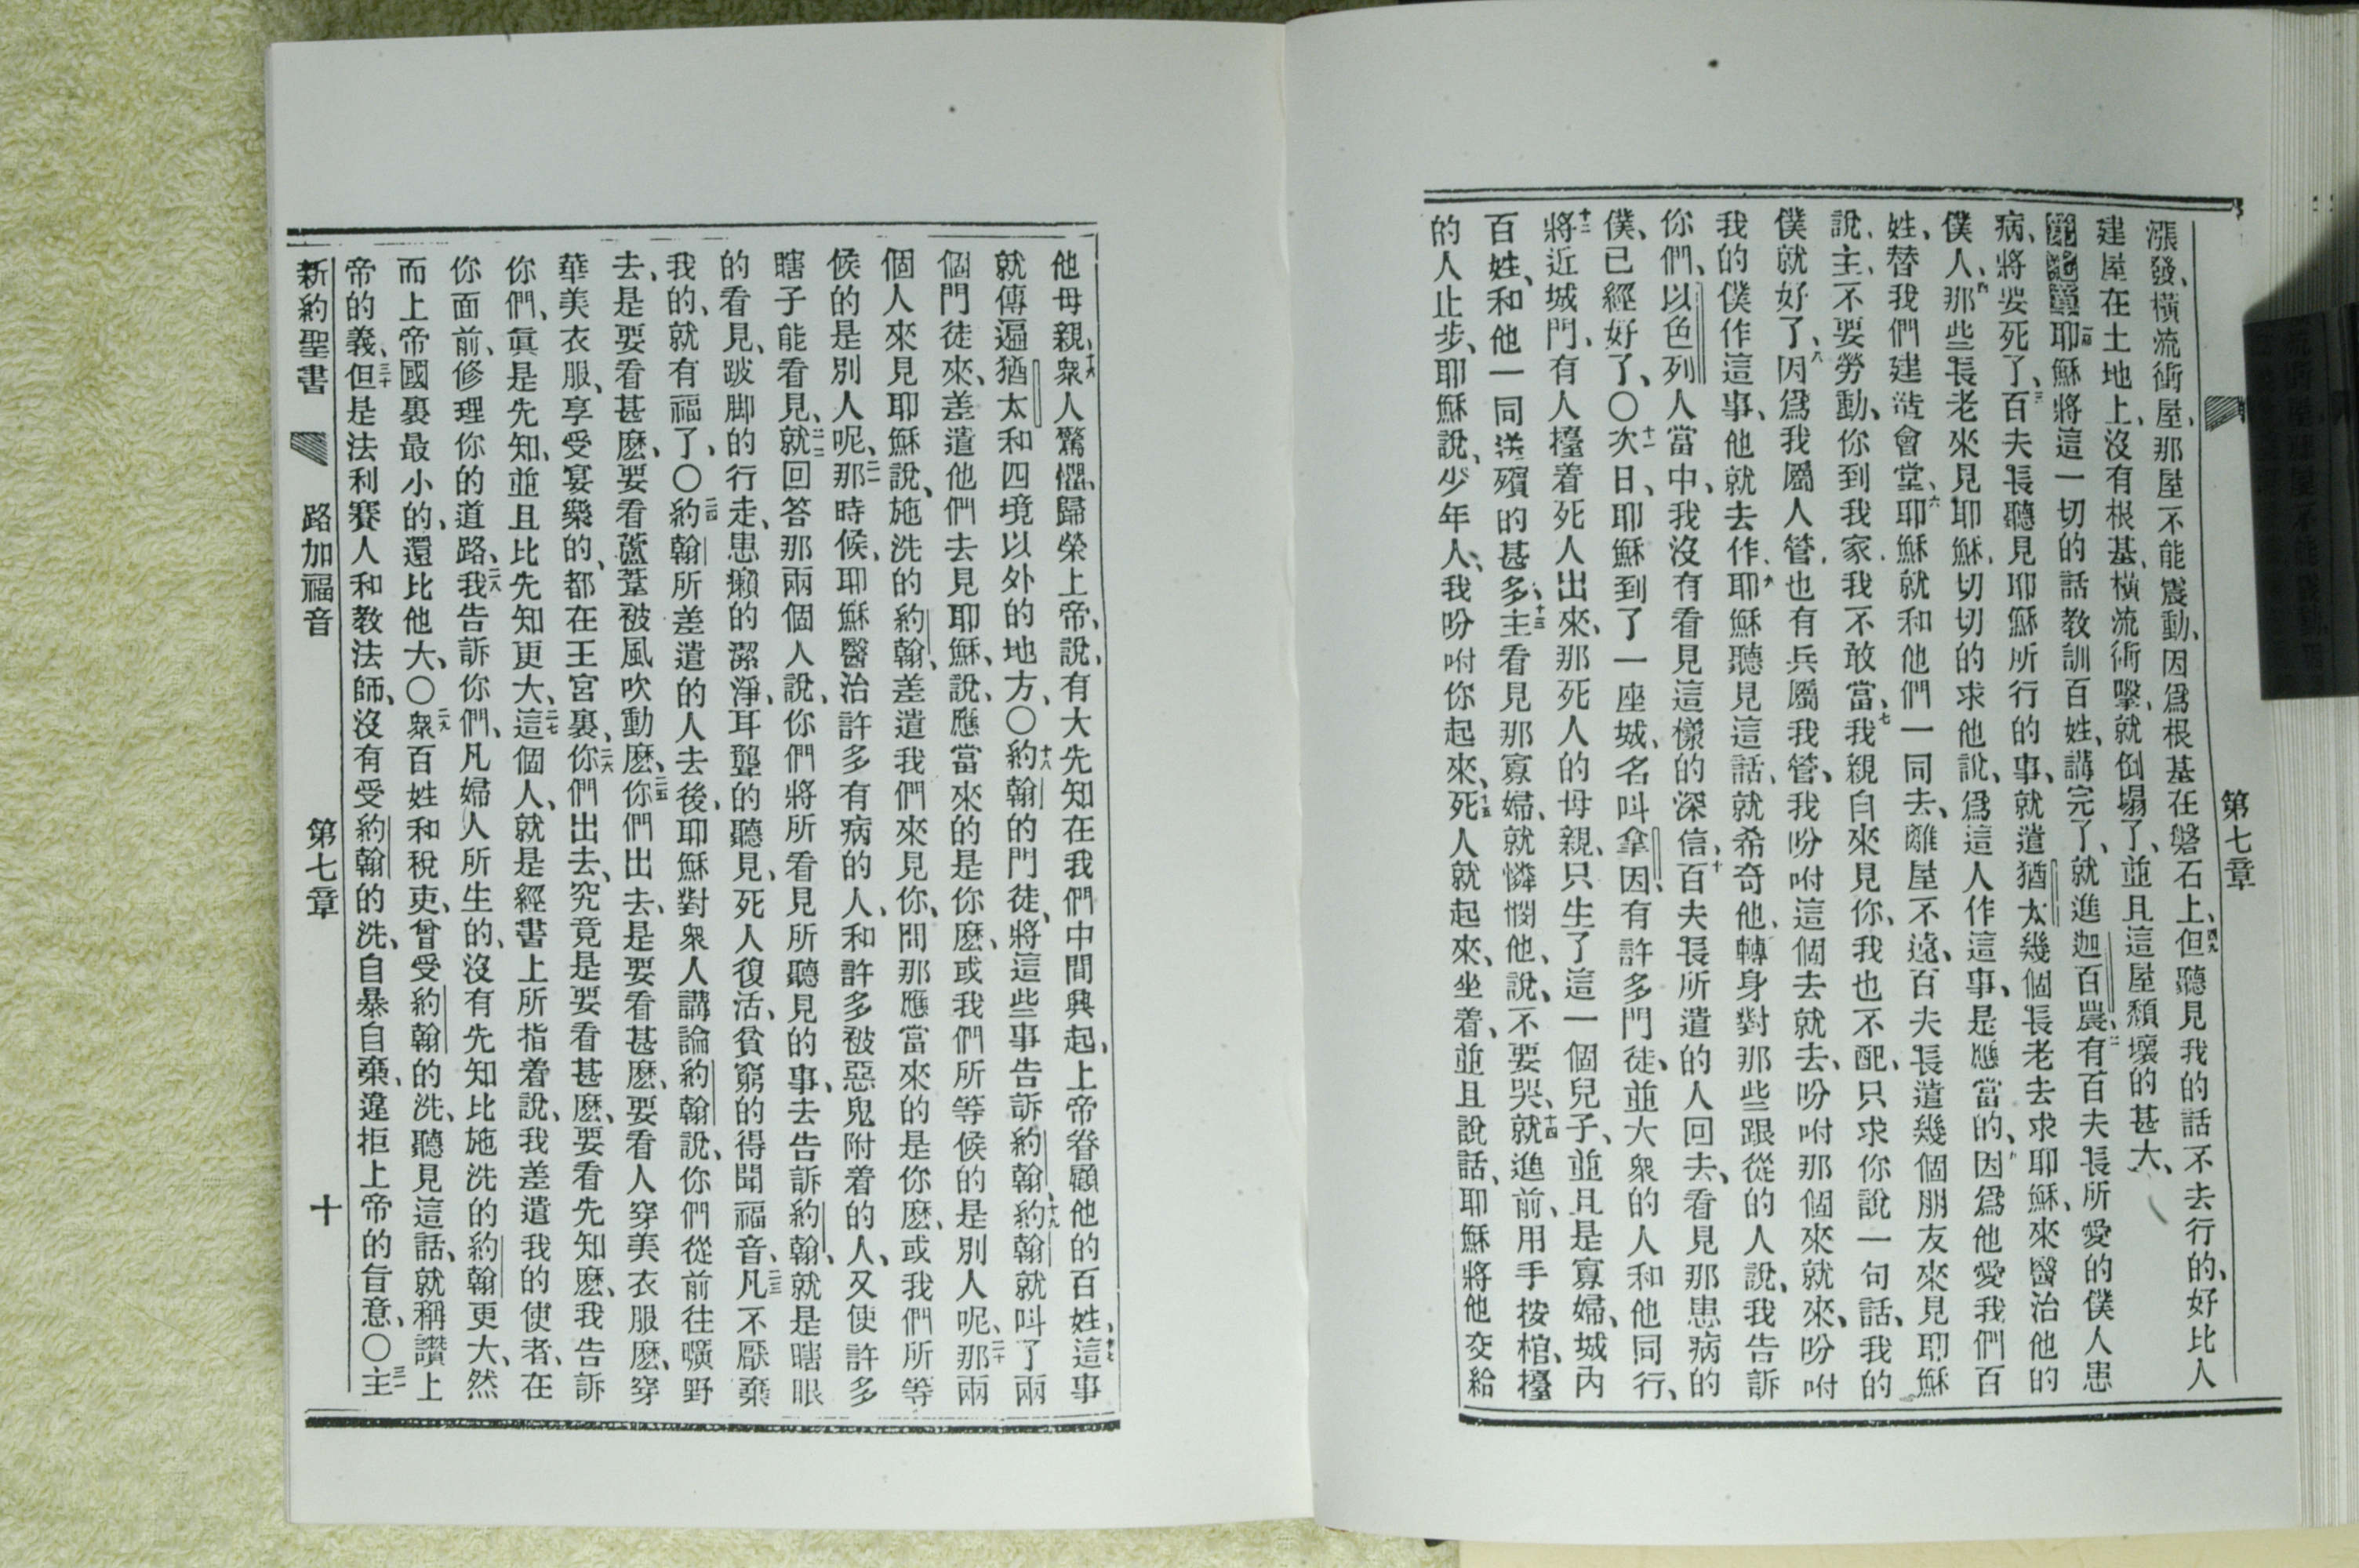 第七章
漲發、橫流衝屋、那屋不能震動、因爲根基在磐石上、四九但聽見我的話不去行的、好比人
建屋在土地上、沒有根基、橫流衝擊、就倒塌了、並且這屋頹壞的甚大、
第七章耶穌將這一切的話教訓百姓、講完了、就進迦百農、二有百夫長所愛的僕人患
病、將要死了、三百夫長聽見耶穌所行的事、就遣猶太幾個長老去求耶穌、來醫治他的
僕人、四那些長老來見耶穌、切切的求他說、爲這人作這事、是應當的、五因爲他愛我們百
姓、替我們建造會堂、六耶穌就和他們一同去、離屋不遠、百夫長遣幾個朋友來見耶穌
說、主、不要勞動、你到我家、我不敢當、七我親自來見你、我也不配、只求你說一句話、我的
僕就好了、八因爲我屬人管、也有兵屬我管、我吩咐這個去就去、吩咐那個來就來、吩咐
我的僕作這事、他就去作、九耶穌聽見這話、就希奇他、轉身對那些跟從的人說、我告訴
你們、以色列人當中、我沒有看見這樣的深信、十百夫長所遣的人回去、看見那患病的
僕、已經好了、〇十一次日、耶穌到了一座城、名叫拿因、有許多門徒、並大衆的人和他同行、
十二將近城門、有人擡着死人出來、那死人的母親、只生了這一個兒子、並且是寡婦、城內
百姓、和他一同送殯的甚多、十三主看見那寡婦、就憐憫他、說、不要哭、十四就進前、用手按棺、擡
的人止步、耶穌說、少年人、我吩咐你起來、十五死人就起來、坐着、並且說話、耶穌將他交給
他母親、十六衆人驚懼、歸榮上帝、說、有大先知在我們中間興起、上帝眷顧他的百姓、十七這事
就傳遍猶太和四境以外的地方、〇十八約翰的門徒、將這些事告訴約翰、十九約翰就叫了兩
個門徒來、差遣他們去見耶穌、說、應當來的是你麽、或我們所等候的是別人呢、二十那兩
個人來見耶穌說、施洗的約翰、差遣我們來見你、問那應當來的是你麽、或我們所等
候的是別人呢、二一那時候、耶穌醫治許多有病的人、和許多被惡鬼附着的人、又使許多
瞎子能看見、二二就回答那兩個人說、你們將所看見所聽見的事、去告訴約翰、就是瞎眼
的看見、跛脚的行走、患癩的潔淨、耳聾的聽見、死人復活、貧窮的得聞福音、二三凡不厭棄
我的、就有福了、〇二四約翰所差遣的人去後、耶穌對衆人講論約翰說、你們從前往曠野
去、是要看甚麽、要看蘆葦被風吹動麽、二五你們出去、是要看甚麽、要看人穿美衣服麽、穿
華美衣服、享受宴樂的、都在王宮裏、二六你們出去、究竟是要看甚麽、要看先知麽、我告訴
你們、眞是先知、並且比先知更大、二七這個人、就是經書上所指着說、我差遣我的使者、在
你面前、修理你的道路、二八我告訴你們、凡婦人所生的、沒有先知比施洗的約翰更大、然
而上帝國裏最小的、還比他大、〇二九衆百姓和稅吏、曾受約翰的洗、聽見這話、就稱讚上
帝的義、三十但是法利賽人和教法師、沒有受約翰的洗、自暴自棄、違拒上帝的旨意、〇三一主
新約聖書 路加福音 第七章 十